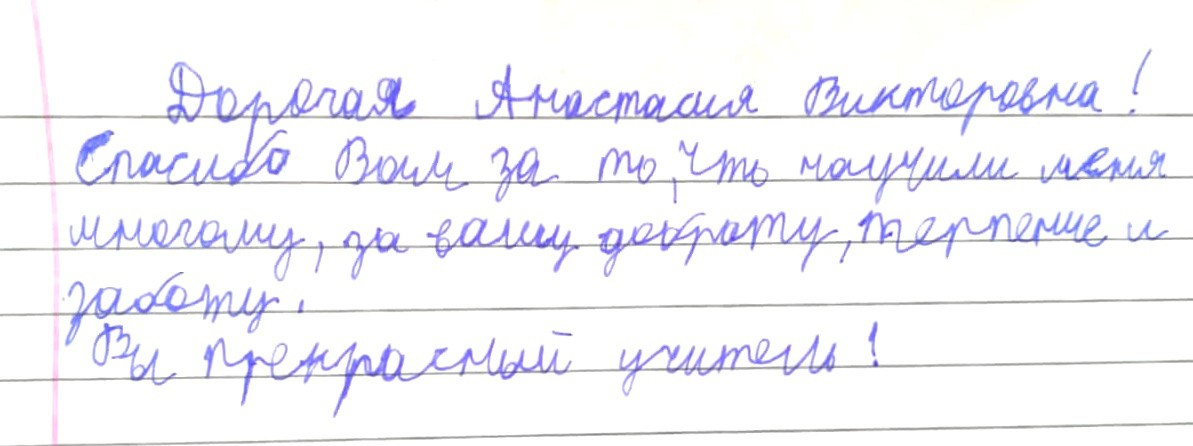 Дорогая Анастасия Викторовна!
Спасибо Вам за то, что научили меня
многому, за вашу доброту, терпение и
заботу.
Вы прекрасный учитель!